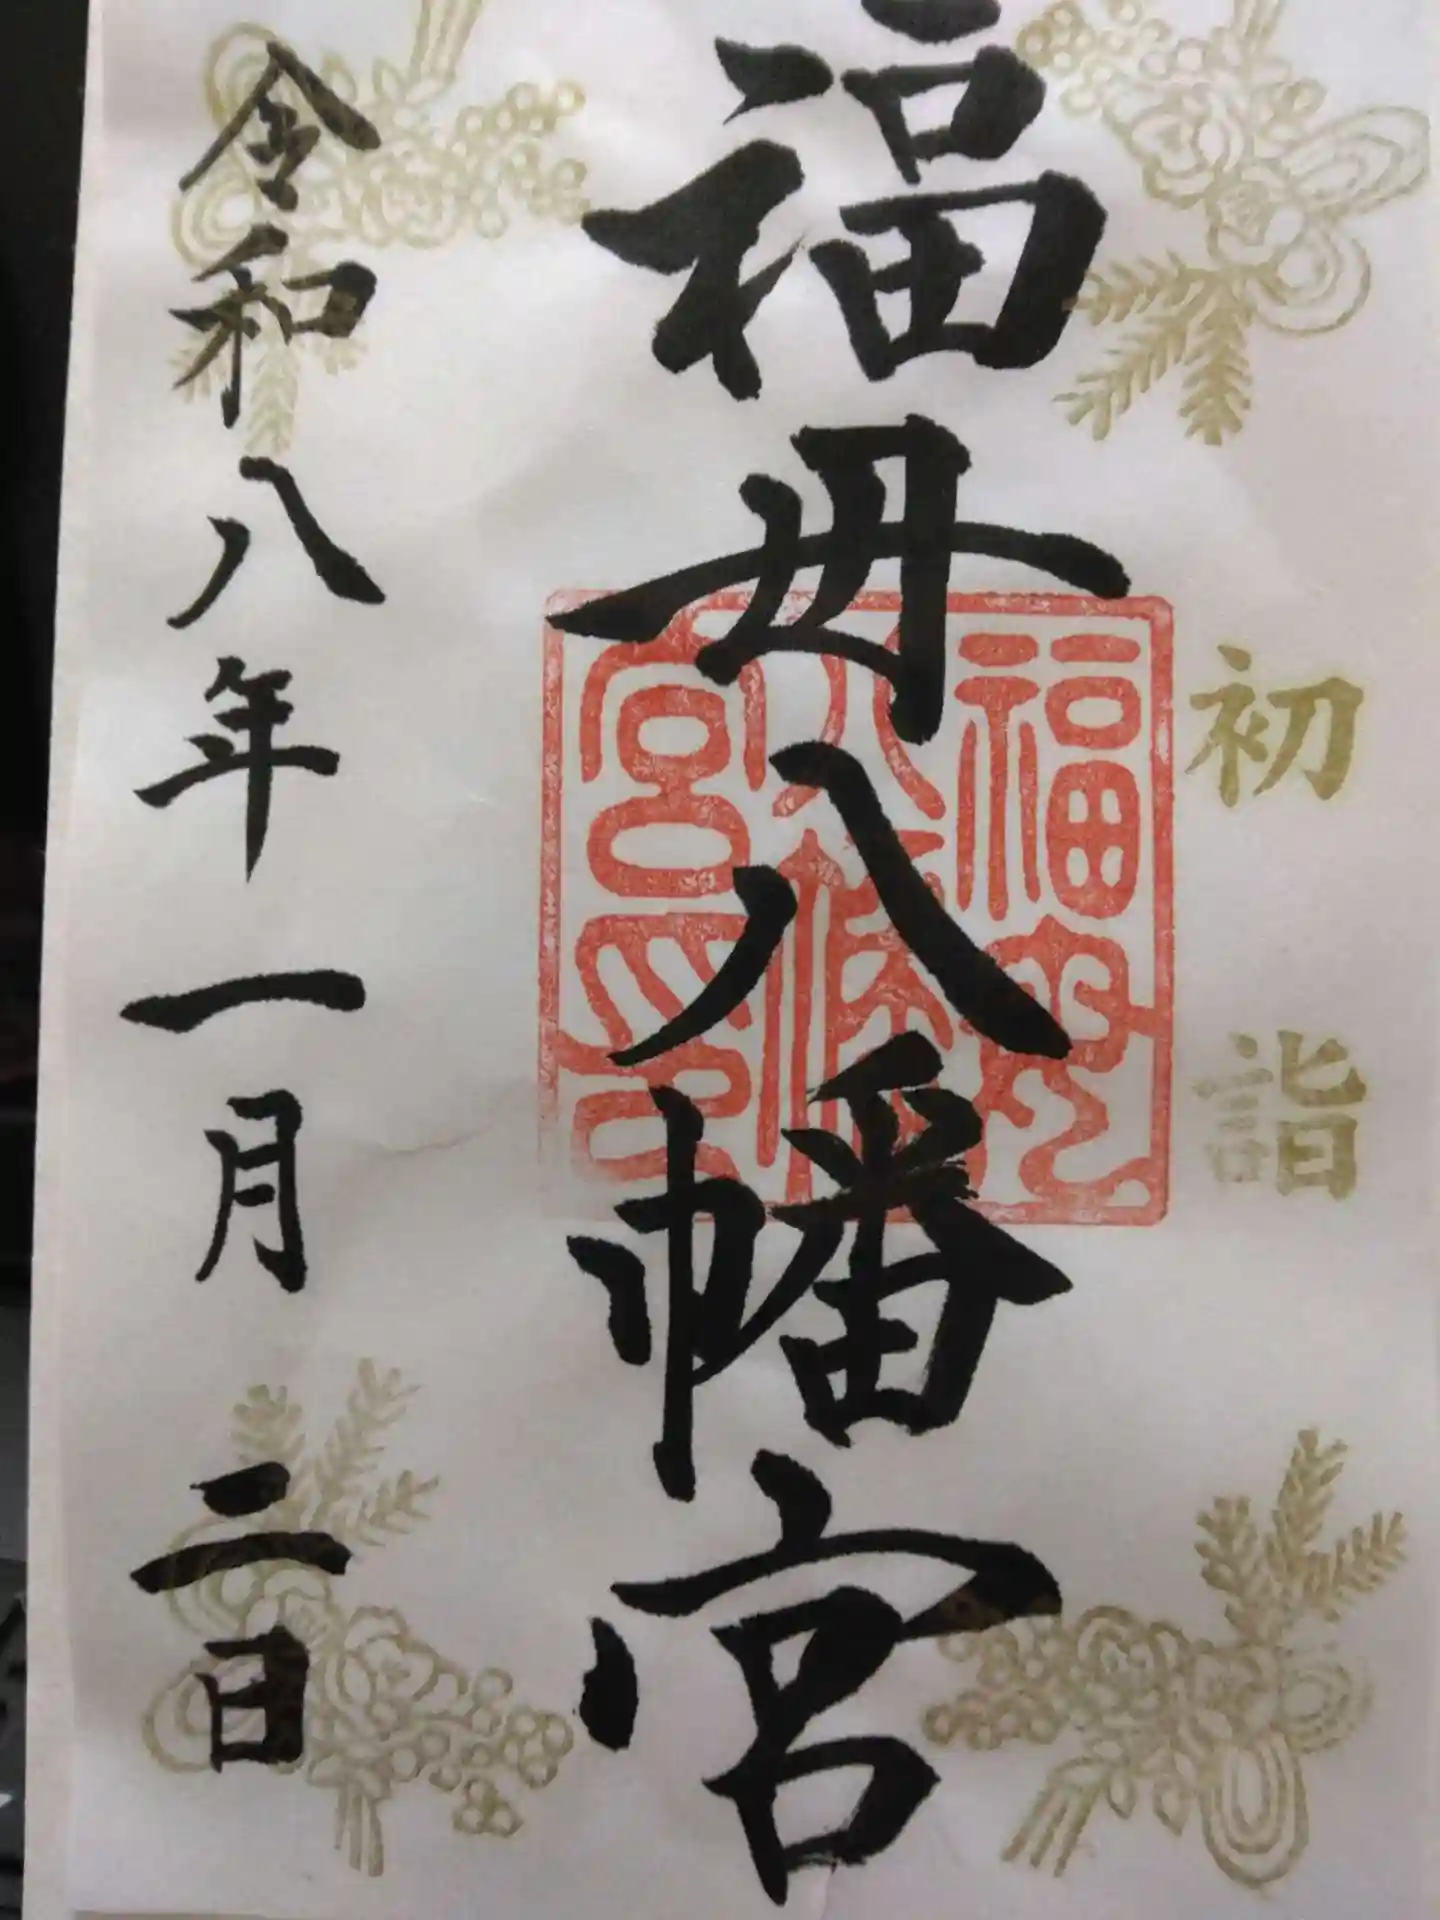 初詣
福母八幡宮
福母八幡宮印
令和八年一月二日